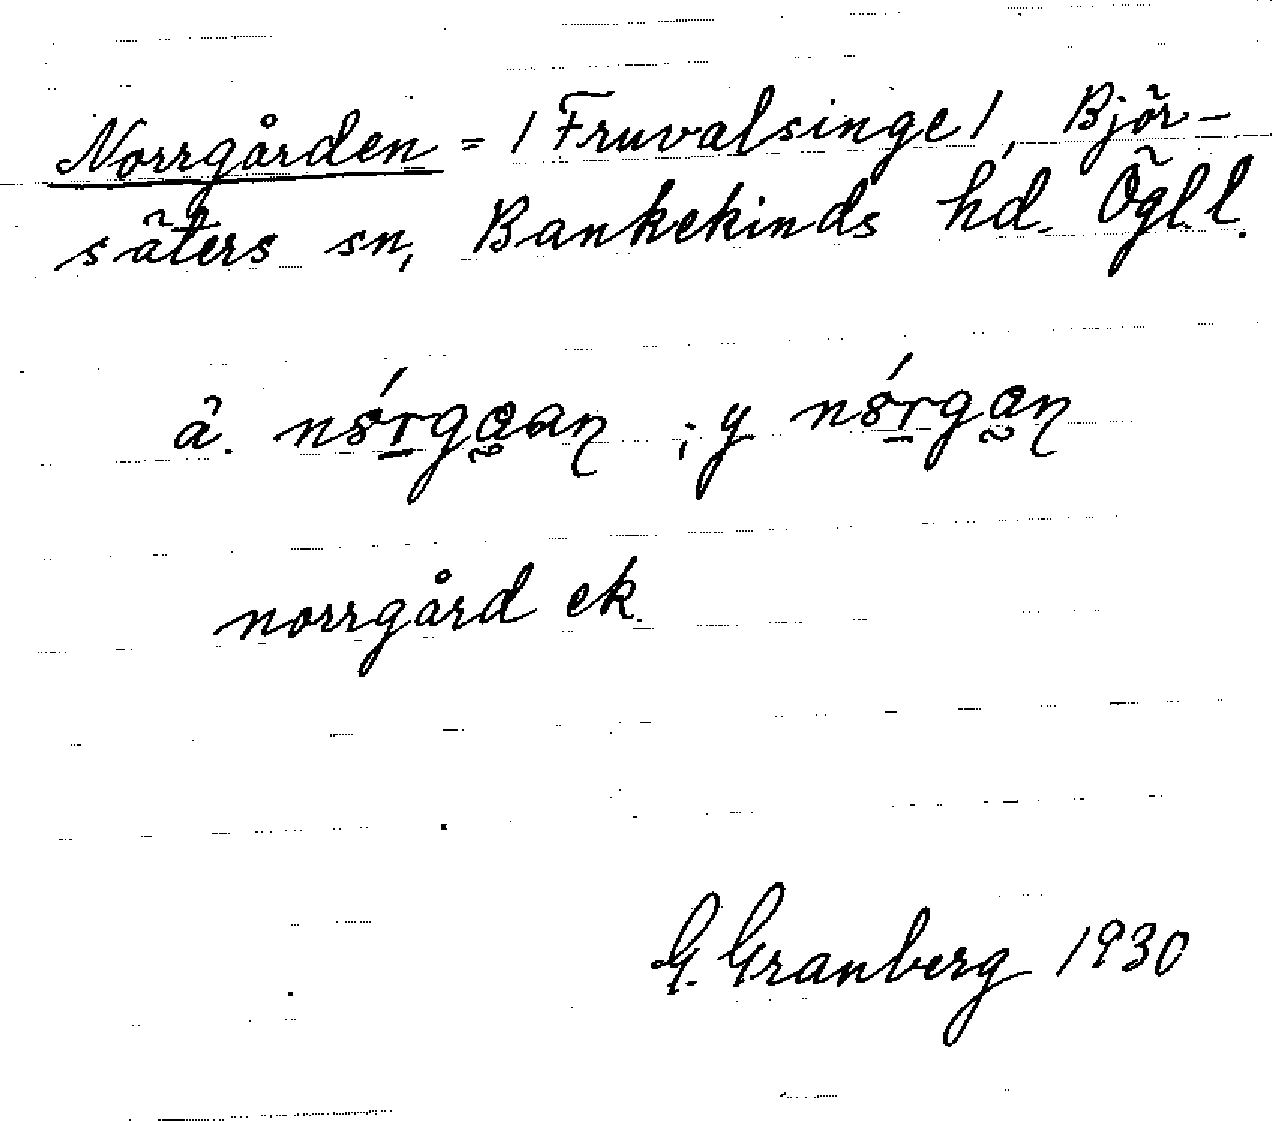 Norrgården = / Fruvalsinge /, Björ-
säters sn, Bankekinds hd. Ögl.
ä. ; y
norrgård ek.
G. Granberg 1930